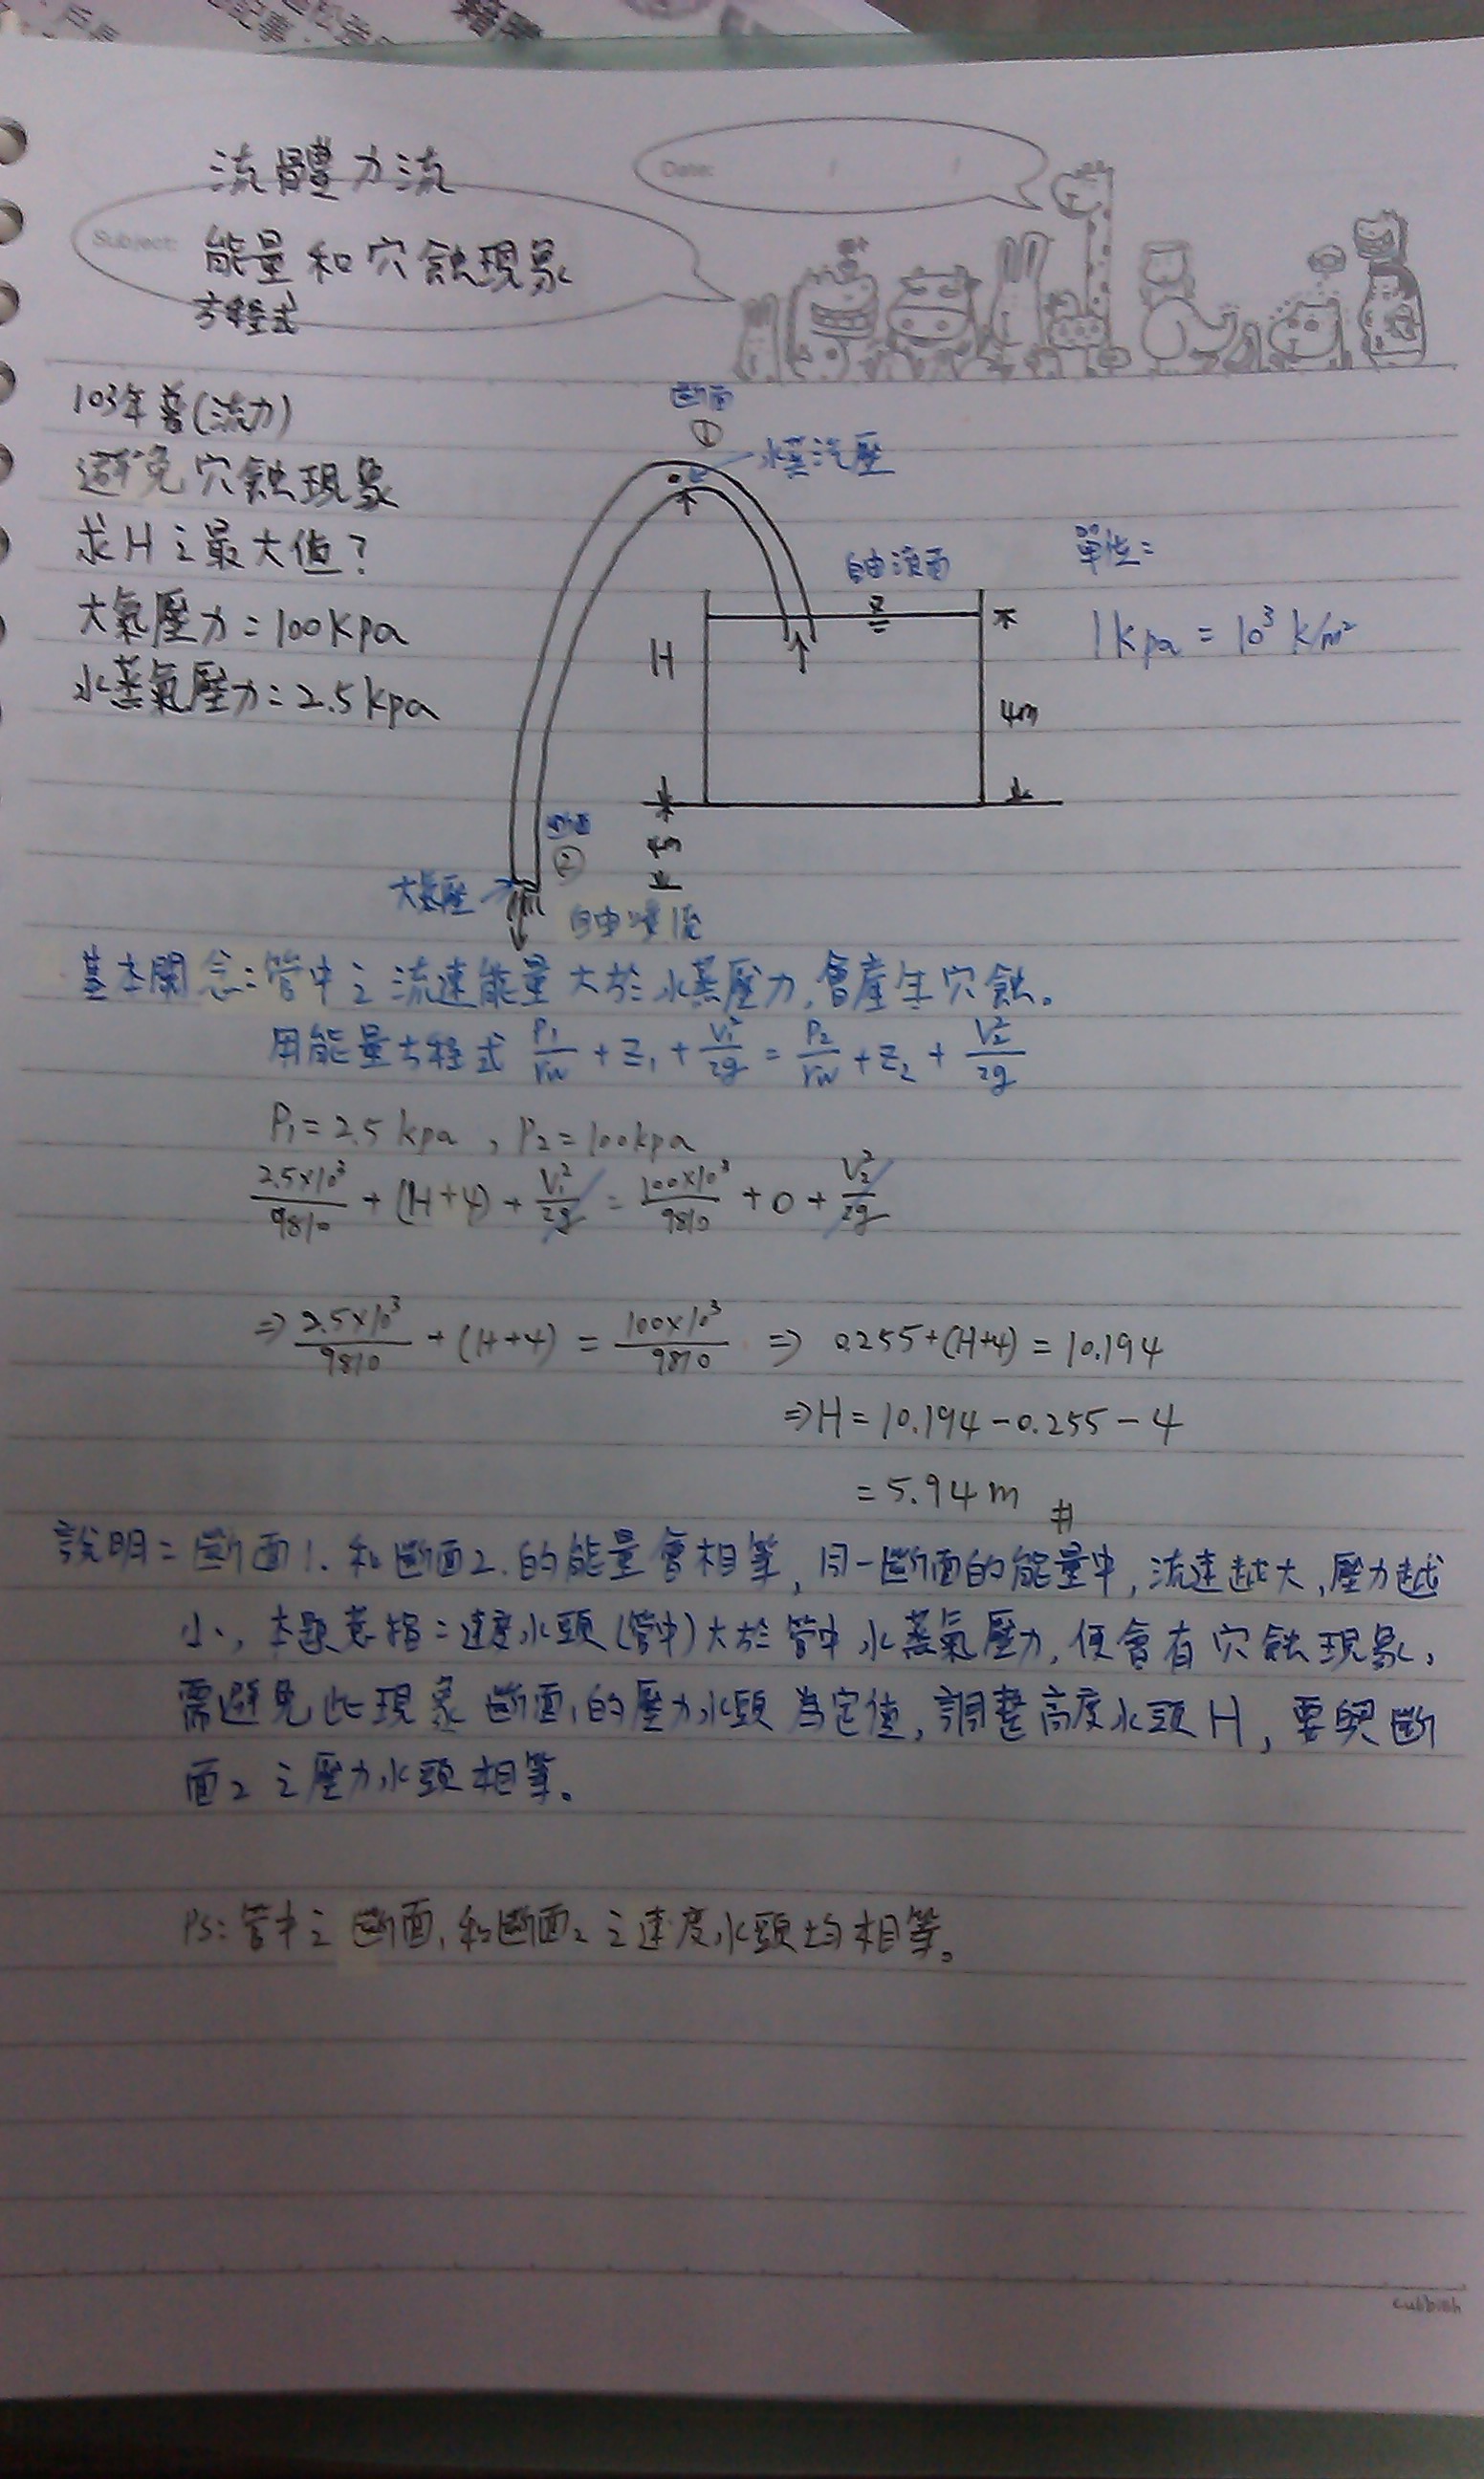 流體力流
Date: / /
Subject: 能量和穴蝕現象
方程式
103年普(流力)
避免穴蝕現象
求H之最大值?
大氣壓力=100kpa
水蒸氣壓力=2.5kpa
斷面
①
水蒸汽壓
自由液面
H
4m
單位=
1kpa = 10³ k/m²
斷面
②
4m
大氣壓
自由
基本關念:管中之流速能量大於水蒸壓力,會產生穴蝕。
用能量方程式 P₁/rw + Z₁ + V₁²/2g = P₂/rw + Z₂ + V₂²/2g
P₁=2.5 kpa , P₂=100kpa
2.5×10³/9810 + (H+4) + V₁²/2g = 100×10³/9810 + 0 + V₂²/2g
⇒ 2.5×10³/9810 + (H+4) = 100×10³/9810 ⇒ 0.255+(H+4) = 10.194
⇒H = 10.194 - 0.255 - 4
= 5.94m #
說明=斷面1.和斷面2.的能量會相等,同一斷面的能量中,流速越大,壓力越
小,本題意指=速度水頭(管中)大於管中水蒸氣壓力,便會有穴蝕現象,
需避免此現象斷面1的壓力水頭為定值,調整高度水頭H,要與斷
面2之壓力水頭相等。
PS:管中之斷面1和斷面2之速度水頭均相等。
cubbish